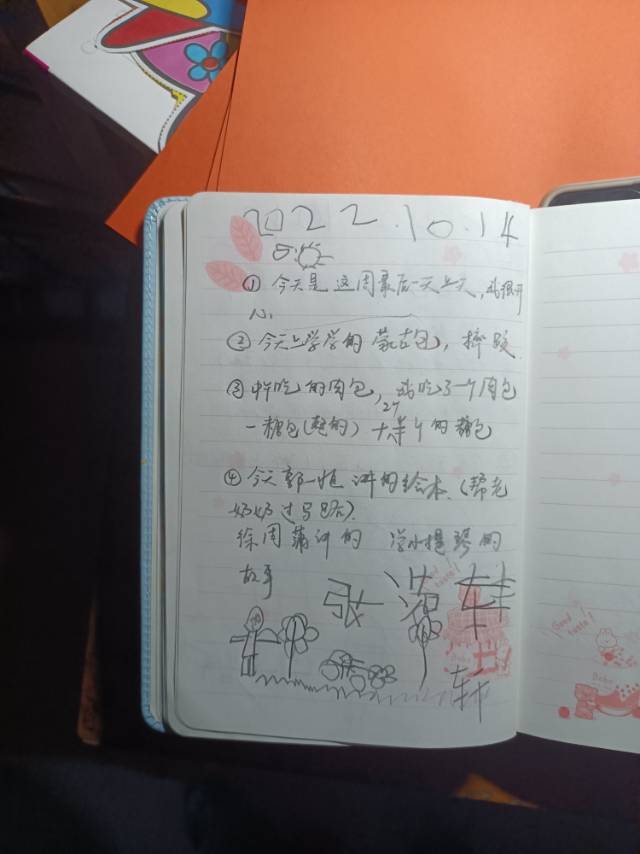 2022.10.14
① 今天是这周最后一天上天,我很开
心
② 今天上学学的蒙古包,摔跤
③ 中午吃的肉包,我吃了一个肉包
2个
一糖包(甜的) 十半个的糖包
④ 今天郭一恒讲的绘本.(帮老
奶奶过马路).
徐周蒲讲的 学小提琴的
故事
张 轩
轩
Good taste!